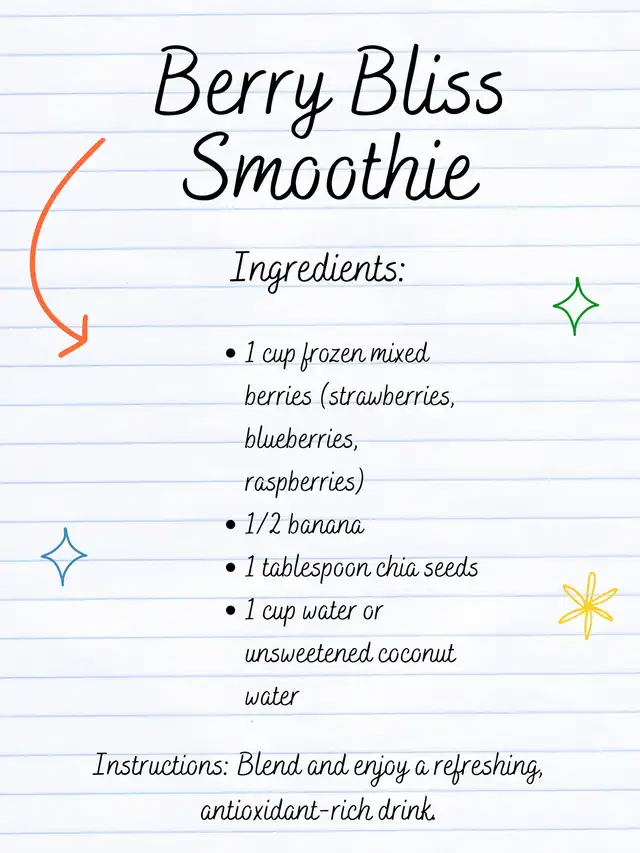 Berry Bliss
Smoothie
Ingredients:
• 1 cup frozen mixed
berries (strawberries,
blueberries,
raspberries)
• 1/2 banana
• 1 tablespoon chia seeds
• 1 cup water or
unsweetened coconut
water
Instructions: Blend and enjoy a refreshing,
antioxidant-rich drink.